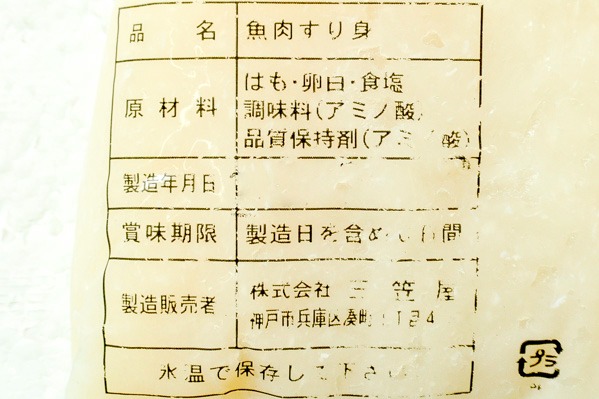 品名 魚肉すり身
原材料 はも・卵白・食塩
調味料(アミノ酸)
品質保持剤(アミノ酸)
製造年月日
賞味期限 製造日を含めて 日間
製造販売者 株式会社 三笠屋
神戸市兵庫区湊町 丁目4
氷温で保存して下さい
プラ